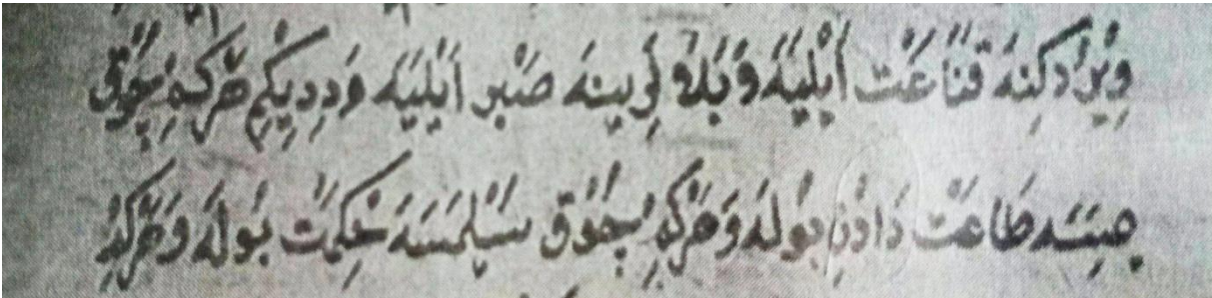 ويردكنه قناعت أيليه وبلاء لرينه صبر أيليه وديديكم هركم چوق
يمسه طاعت دادن بوله وهركم چوق سيلمسه حكمت بوله وهركم